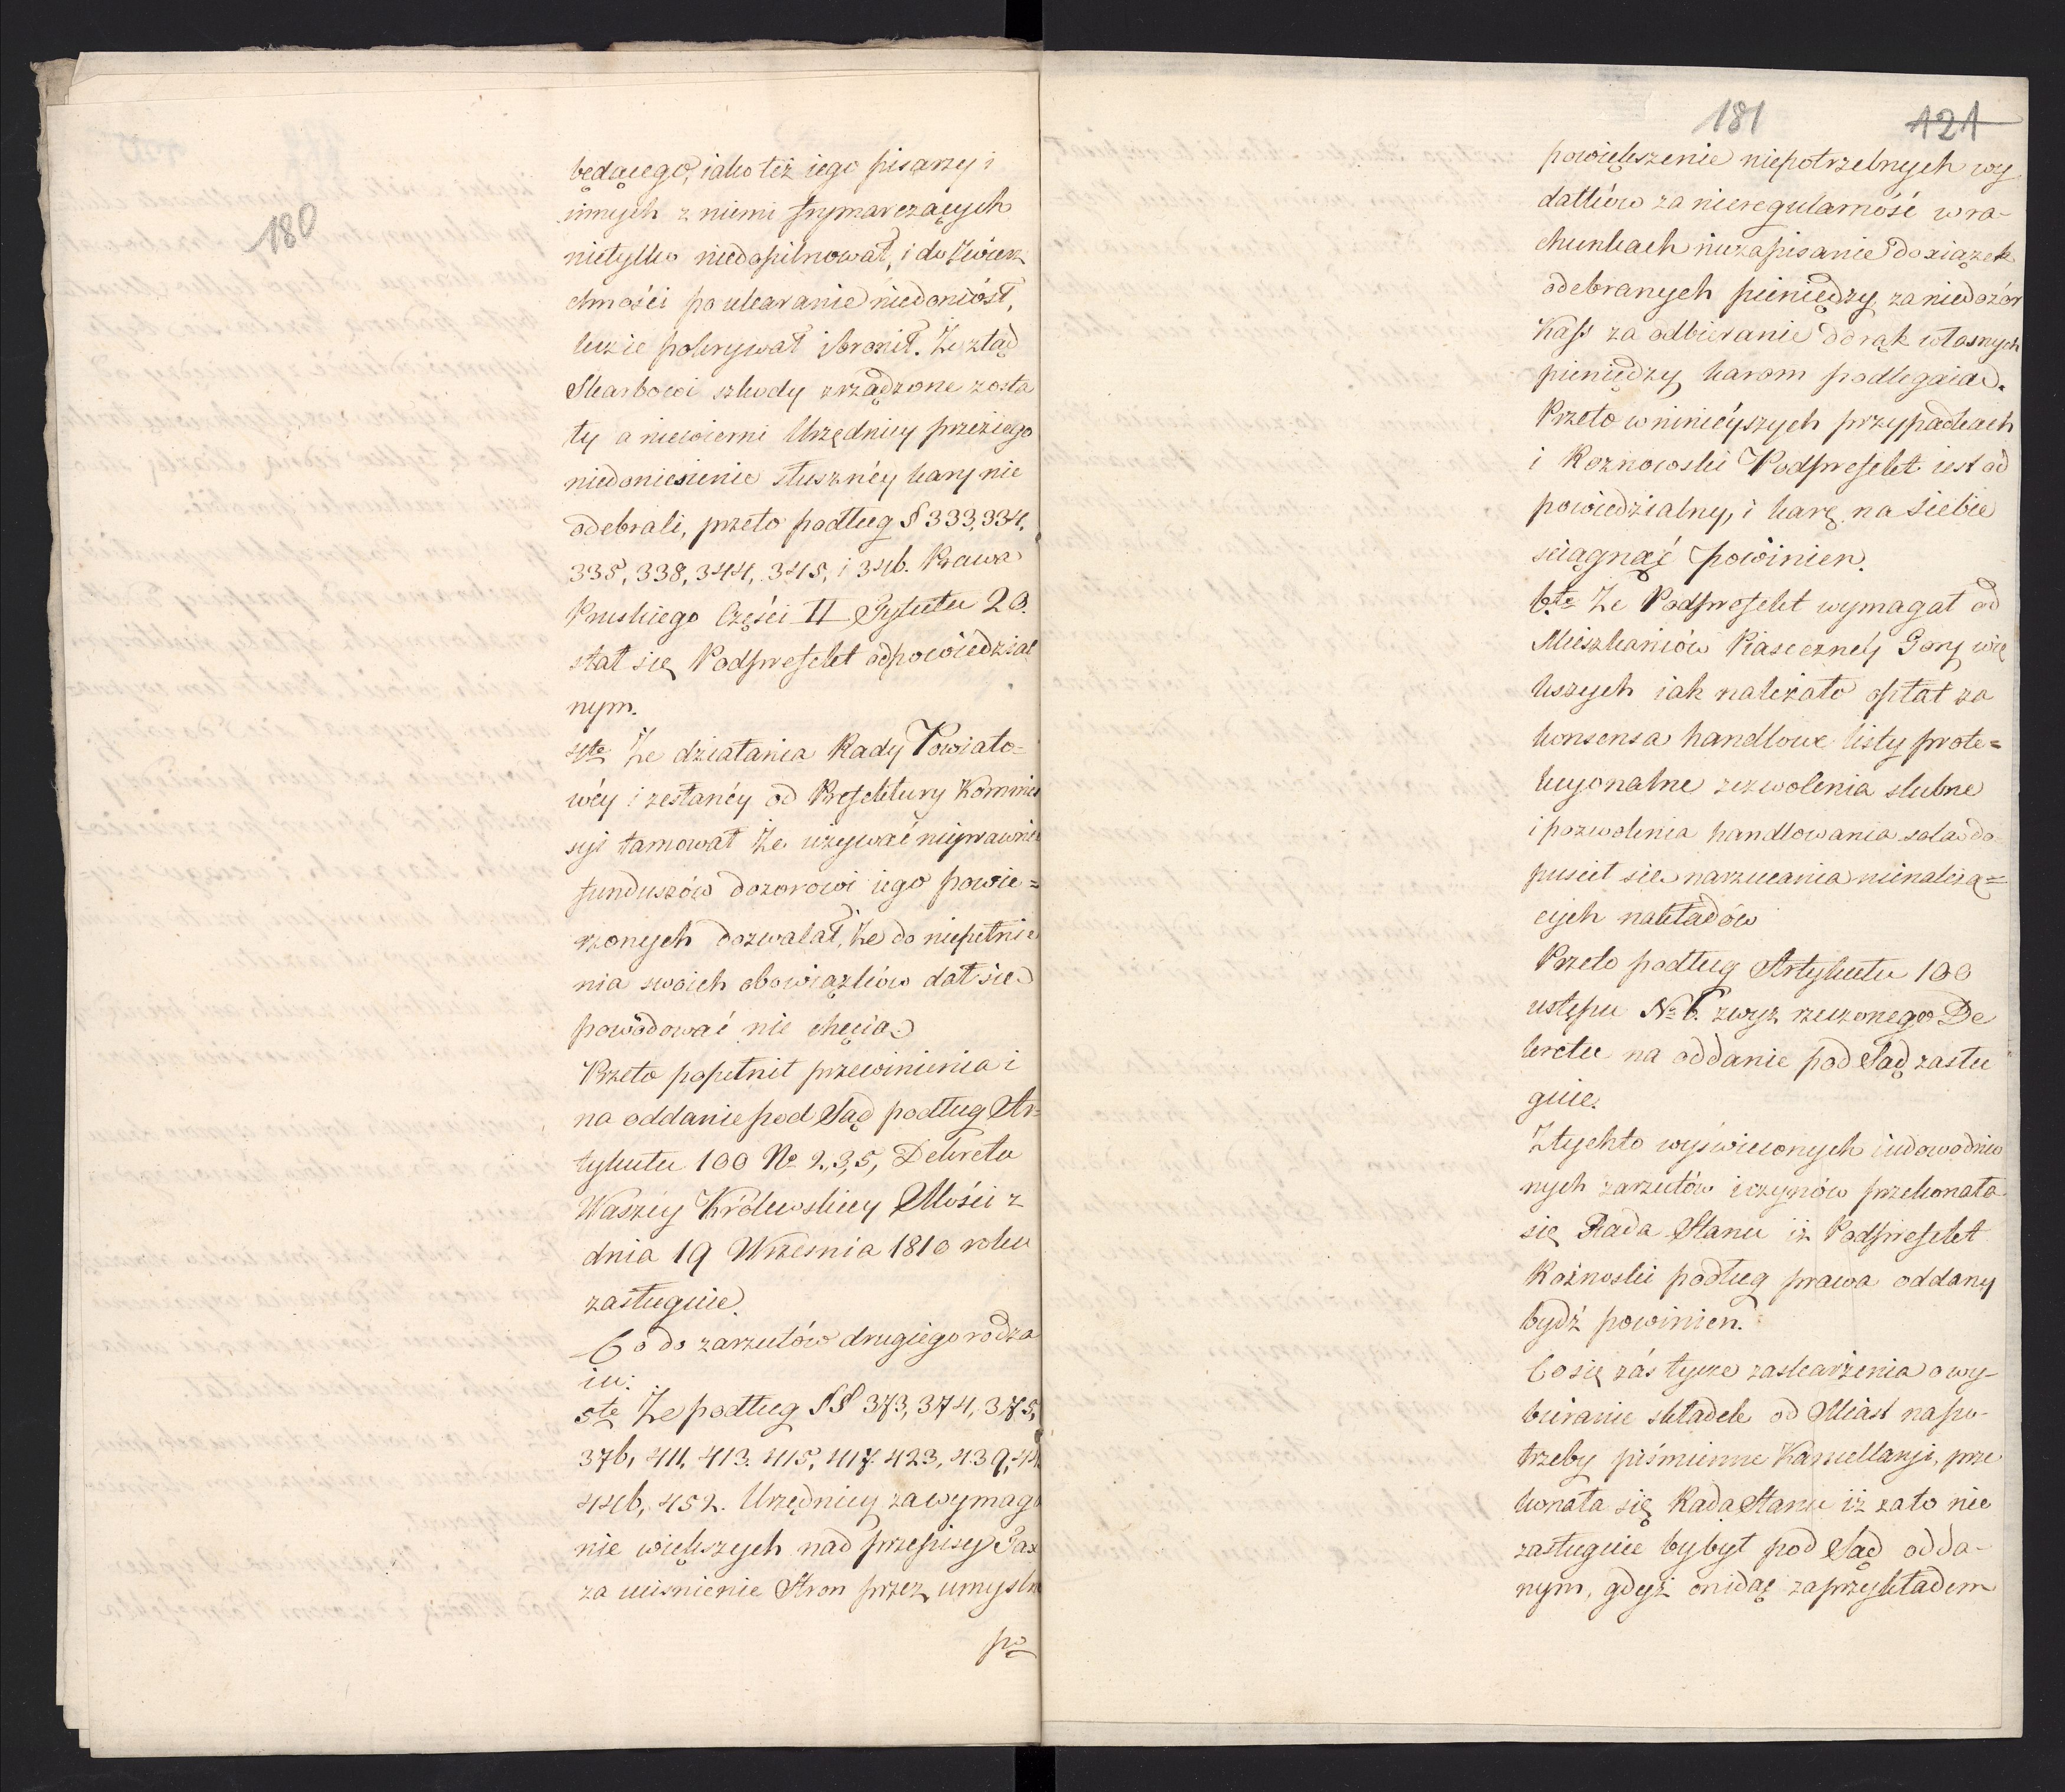 180
będącego, iako też iego pisarzy i
innych z niemi frymarczących
nietylko niedopilnował, i do zwierz
chności po ukaranie niedoniósł,
lecz ie pokrywał i bronił. Że ztąd
Skarbowi szkody zrządzone zosta
ły a niewierni Urzędnicy przez iego
niedoniesienie słusznéy kary nie
odebrali, przeto podług § 333, 334,
335, 338, 344, 345, i 346. Prawa
Pruskiego Części II Tytułu 20.
stał się Podprefekt odpowiedzial
nym.
4te Że działania Rady Powiato=
wéy i zesłanéy od Prefektury Kommis
syi tamował Że używać nieprawnie
funduszów dozorowi iego powie=
rzonych dozwalał, Że do niepełnie
nia swoich obowiązków dał się
powodować nie chęcią
Przeto popełnił przewinienia i
na oddanie pod Sąd podług Ar=
tykułu 100 No 2, 3, 5, Dekretu
Waszéy Królewskiey Mości z
dnia 19 Września 1810 roku
zasługuie.
Co do zarzutów drugiego rodza
iu:
5te Że podług §§ 373, 374, 375,
376, 411, 413. 415, 417. 423, 439,
446, 452. Urzędnicy za wymaga
nie większych nad przepisy Tax
za uciśnienie Stron przez umyślne
po
181
121
powiększenie niepotrzebnych wy
datków za nieregularność w ra-
chunkach niezapisanie do xiążek
odebranych pieniędzy, za niedozór
Kass za odbieranie do rąk własnych
pieniędzy karom podlegaią.
Przeto w niniéyszych przypadkach
i Koznowski Podprefekt iest od
powiedzialny, i karę na siebie
sciągnąć powinien.
6te Że Podprefekt wymagał od
Mieszkańców Piasecznéy Gory wię
kszych iak należało opłat za
konsensa handlowe listy prote=
kcyonalne zezwolenia slubne
i pozwolenia handlowania solą do
puscił się narzucania nienależą=
cych nakładów
Przeto podług Artykułu 100
ustępu No 6. zwyż rzeczonego De
kretu na oddanie pod Sąd zasłu
guie.
Z tych to wyświeconych i udowodnio
nych zarzutów i czynów przekonała
się Rada Stanu iż Podprefekt
Koźnoski podług prawa oddany
bydź powinien.
Co się záś tycze zaskarżenia o wy-
bieranie składek od Miast na po-
trzeby piśmienne Kancellaryi, prze
konała się Rada Stanu iż za to nie
zasługuie by był pod Sąd odda-
nym, gdyż on idąc za przykładem